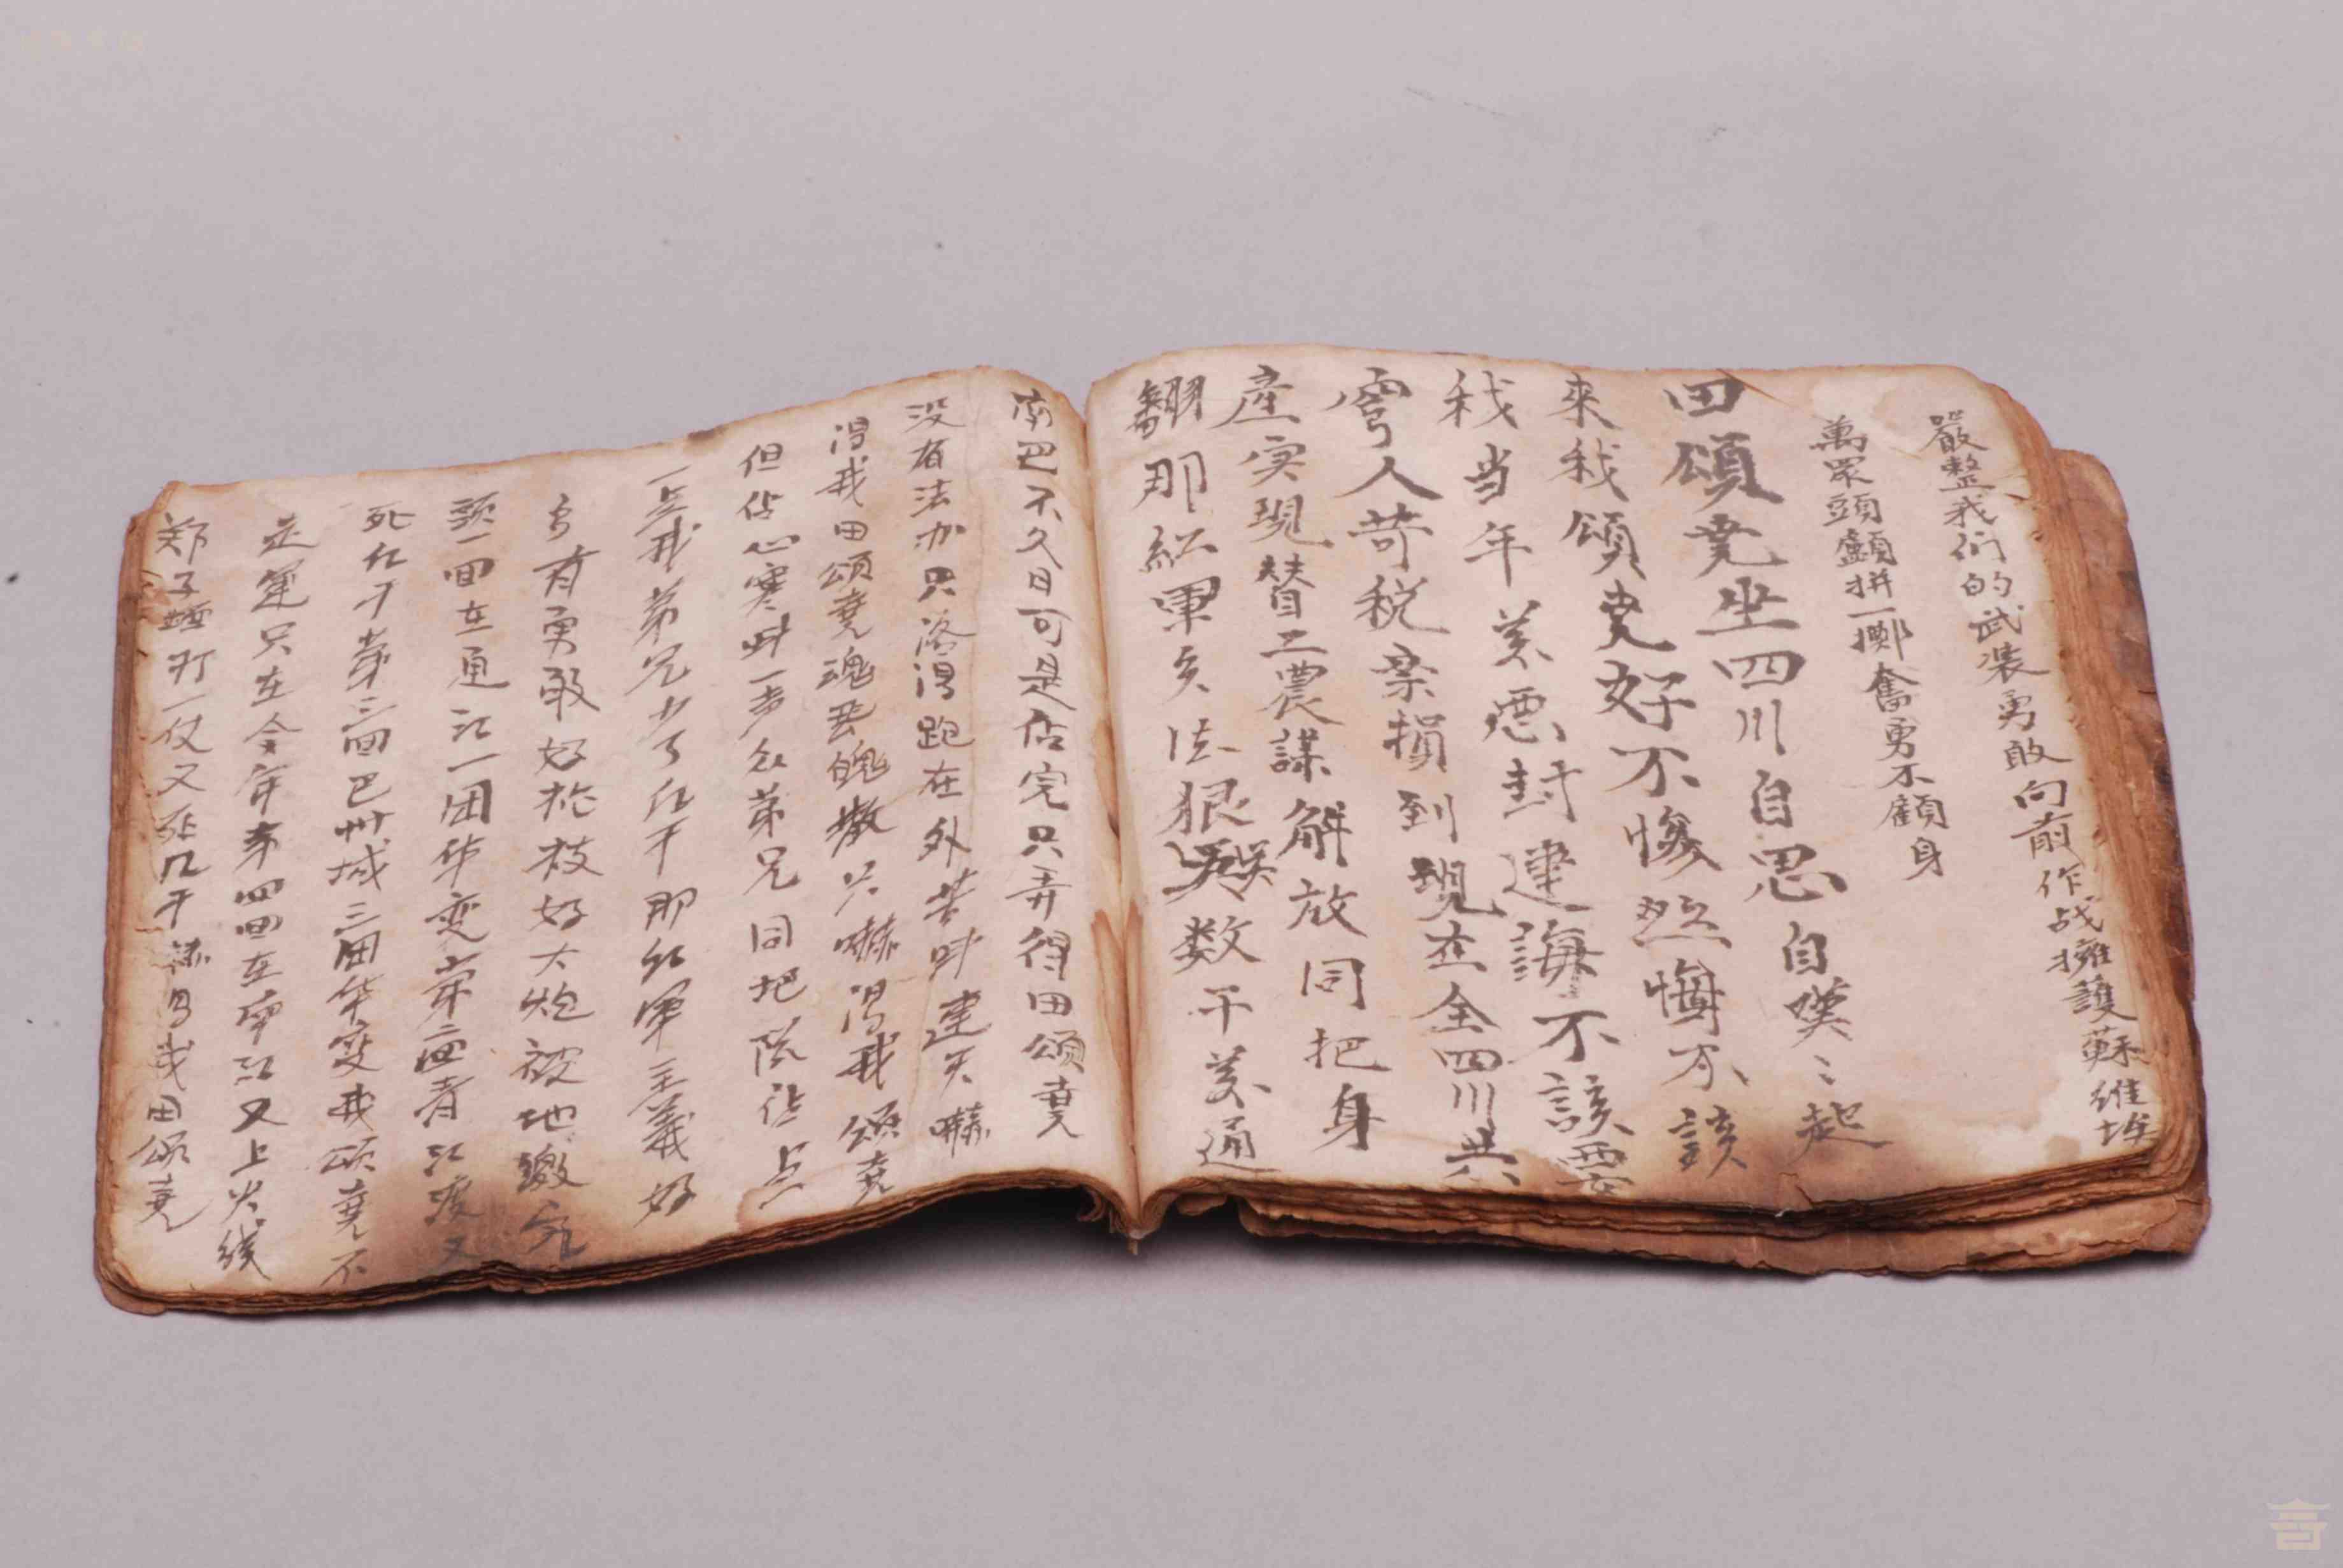 嚴整我们的武装勇敢向前作战擁護蘇維埃
萬眾頭顱拼一擲奮勇不顧身
田頌堯坐四川自思自嘆〻起
來我頌堯好不慘然悔不該
我当年美悪封建誨不該要
窮人苛税杂損到現在全四川共
產实現賛工農謀解放同把身
翻那紅軍 法狠 数千美通
南巴不久日可是佔完只弄得田頌堯
没有法办只落得跑在外苦呌連天嚇
得我田頌堯魂飛魄散只嚇得我頌堯
但佔心寒呌一声众弟兄同把隊佔上
一上我弟兄少了几千那紅軍主義好
有勇敢好枪枝好大炮被他繳完
頭一囬在通江一团华变第二囬者江渡又
死几千第三囬巴州城三团华变我頌堯不
走運只在今年第四囬在南江又上火线
郑子 打一仗又死几千 得我田頌堯